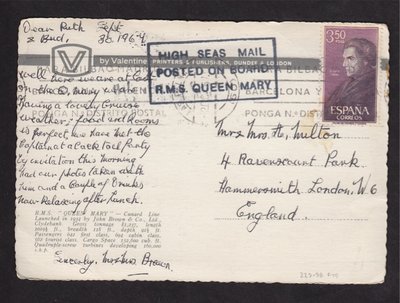 Dear Ruth Sept
& Bud, 30 1967
by Valentine PRINTERS & PUBLISHERS, DUNDEE & LONDON
HIGH SEAS MAIL
POSTED ON BOARD
R.M.S. QUEEN MARY
3,50
PTAS
ESPAÑA
CORREOS
BARCELONA Y
BILBAO
PONGA Nº DISTRITO POSTAL
PONGA Nº DISTRITO
Well here we are at last
on the Q. Mary &
Having a lovely Cruise
weather, food and Rooms
is perfect, we have met the
Captain at a Cocktail Party
by invitation this morning
had our photos taken with
him and a Couple of Drinks
now Relaxing after lunch.
R.M.S. "QUEEN MARY" - Cunard Line
Launched in 1934 by John Brown & Co., Ltd.,
Clydebank. Gross tonnage 81,237, length
1019½ ft., breadth 118 ft., depth
Passengers 621 first class, 694 cabin class,
tourist class. Cargo Space 132,600 cub. ft.
Quadruple-screw turbines developing
Sincerely, Mrs Brown.
Mrs Mrs H. Milton
4 Ravenscourt Park
Hammersmith London. W6
England.